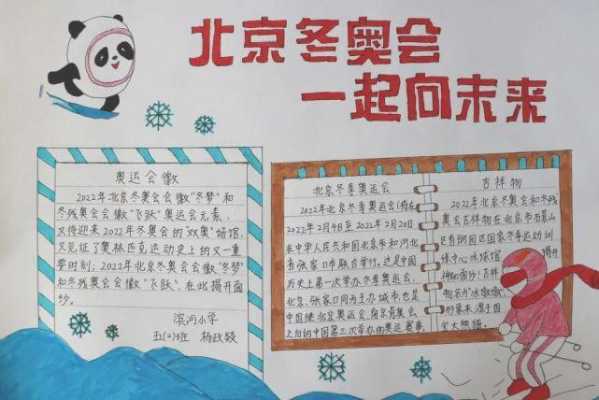 北京冬奥会
一起向未来
奥运会徽
2022年北京冬奥会会徽“冬梦”和
冬残奥会会徽“飞跃”奥运会元素,
又传迎来2022年冬奥会的“双奥”场馆,
又见证了奥林匹克运动史上的又一重
要时刻:2022年北京冬奥会会徽“冬梦”
和冬残奥会会徽“飞跃”在此揭开面
纱。
滨河小学
五(2)班 杨政毅
北京冬季奥运会
2022年北京冬季奥运会
2022年2月4日至2022年2月20日
在中华人民共和国北京市和河北
省张家口市联合举行。这是中国
历史上第一次举办冬季奥运会,
北京、张家口同为主办城市,也是
中国继北京奥运会、南京青奥会
之后的中国第三次举办的奥运赛事
吉祥物
2022年北京奥会和冬残
奥会吉祥物在北京市石景山
区首钢园区国家冬季运动训
练中心冰球馆揭开
神秘面纱:吉祥
物名为“冰墩墩”,
形象来源于国
宝大熊猫。